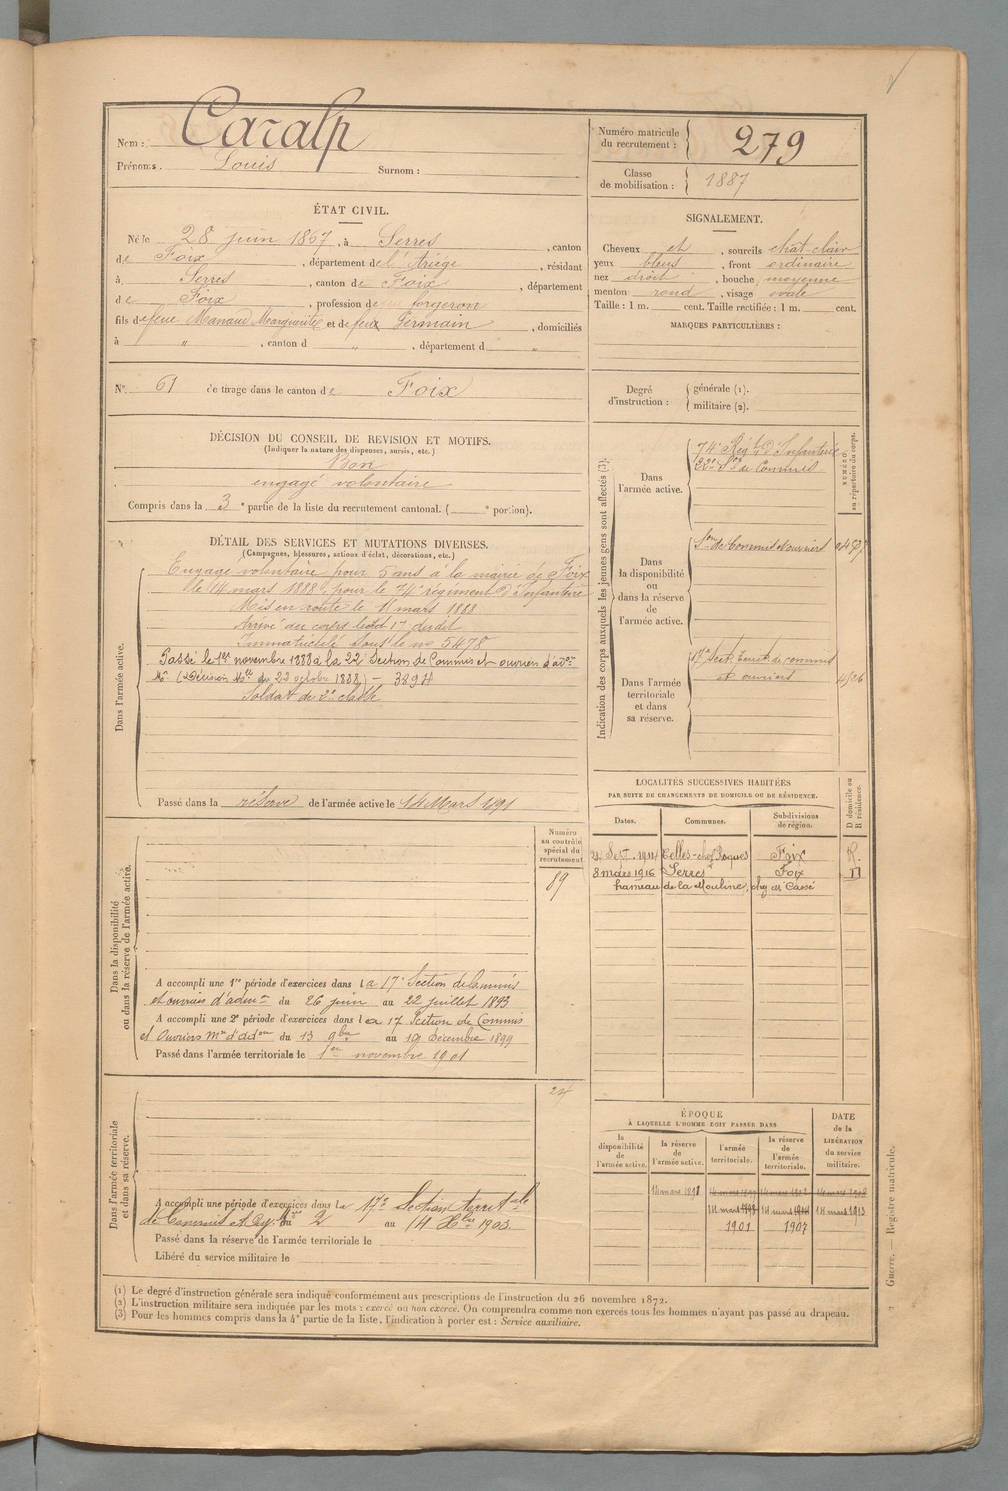 Nom : Caralp
Prénoms. Louis Surnom :
Numéro matricule du recrutement : 279
Classe de mobilisation : 1887
ÉTAT CIVIL.
Né le 28 juin 1867, à Serres, canton
de Foix, département de l'Ariège, résidant
à Serres, canton de Foix, département
de Foix, profession de forgeron
fils de feue Manaud Marguerite et de feux Germain, domiciliés
à " , canton d " , département d "
N° 61 de tirage dans le canton de Foix
SIGNALEMENT.
Cheveux et , sourcils chat-clair
yeux bleus , front ordinaire
nez droit , bouche moyenne
menton rond , visage ovale
Taille : 1 m. cent. Taille rectifiée : 1 m. cent.
MARQUES PARTICULIÈRES :
Degré d'instruction : générale (1).
militaire (2).
DÉCISION DU CONSEIL DE REVISION ET MOTIFS.
(Indiquer la nature des dispenses, sursis, etc.)
Bon
engagé volontaire
Compris dans la 3e partie de la liste du recrutement cantonal. ( e portion).
DÉTAIL DES SERVICES ET MUTATIONS DIVERSES.
(Campagnes, blessures, actions d'éclat, décorations, etc.)
Dans l'armée active.
Engagé volontaire pour 5 ans à la mairie de Foix
le 14 mars 1888, pour le 74e régiment d'Infanterie
Mis en route le 11 mars 1888
Arrivé au corps le 17 dudit
Immatriculé sous le no 5478
Passé le 1er novembre 1888 à la 22e Section de Commis et ouvriers d'adon
Mre (Décision Mlle du 22 octobre 1888) - 3894
Soldat de 2e classe
Passé dans la réserve de l'armée active le 14 Mars 1891
Indication des corps auxquels les jeunes gens sont affectés (3).
NUMÉRO au répertoire du corps.
Dans l'armée active.
74e Régt d'Infanterie
22e Son de Commis
Dans la disponibilité ou dans la réserve de l'armée active.
Son de Commis et ouvriers
Dans l'armée territoriale et dans sa réserve.
17e Sect. Territ. de commis
et ouvriers
LOCALITÉS SUCCESSIVES HABITÉES
PAR SUITE DE CHANGEMENTS DE DOMICILE OU DE RÉSIDENCE.
Dates. Communes. Subdivisions de région. D domicile ou R résidence.
Sept. 1914 Celles-chez Roques Foix R.
8 mars 1916 Serres Foix D
hameau de la Mouline, chez Mr Cassé
Dans la disponibilité ou dans la réserve de l'armée active.
Numéro au contrôle spécial du recrutement
89
A accompli une 1re période d'exercices dans la 17e Section de Commis
et ouvriers d'admon du 26 juin au 22 juillet 1893
A accompli une 2e période d'exercices dans la 17 Section de Commis
et Ouvriers Mres d'adon du 13 9bre au 10 décembre 1899
Passé dans l'armée territoriale le 1er novembre 1901
Dans l'armée territoriale et dans sa réserve.
24
A accompli une période d'exercices dans la 17e Section territale
de Commis et Ouvr. du 2 au 14 Xbre 1903.
Passé dans la réserve de l'armée territoriale le
Libéré du service militaire le
ÉPOQUE
À LAQUELLE L'HOMME DOIT PASSER DANS
la disponibilité de l'armée active. la réserve de l'armée active. l'armée territoriale. la réserve de l'armée territoriale. DATE de la LIBÉRATION du service militaire.
14 mars 1891
14 mars 1913
1901 1907
(1) Le degré d'instruction générale sera indiqué conformément aux prescriptions de l'instruction du 26 novembre 1872.
(2) L'instruction militaire sera indiquée par les mots : exercé ou non exercé. On comprendra comme non exercés tous les hommes n'ayant pas passé au drapeau.
(3) Pour les hommes compris dans la 4e partie de la liste, l'indication à porter est : Service auxiliaire.
Guerre. — Registre matricule.